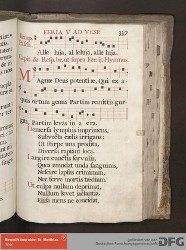 FERIA V AD VESP.
337
Alle luja, al leluja, alle luja.
Capit. & Resp. br. ut supra Fer. Hymnus.
Magnæ Deus potentiæ, Qui ex a
quis ortum genus Partim remittis gur
gi ti, Partim levas in a era.
Demersa lymphis imprimens,
Subvecta cælis irrigans:
Ut stirpe una prodita,
Diversa rapiant loca.
Largire cunctis servulis,
Quos mundat unda sanguinis,
Nescire lapsus criminum,
Nec ferre mortis tædium.
Ut culpa nullum deprimat,
Nullum levet jactantia,
Elisa mens ne concidat,
DFG